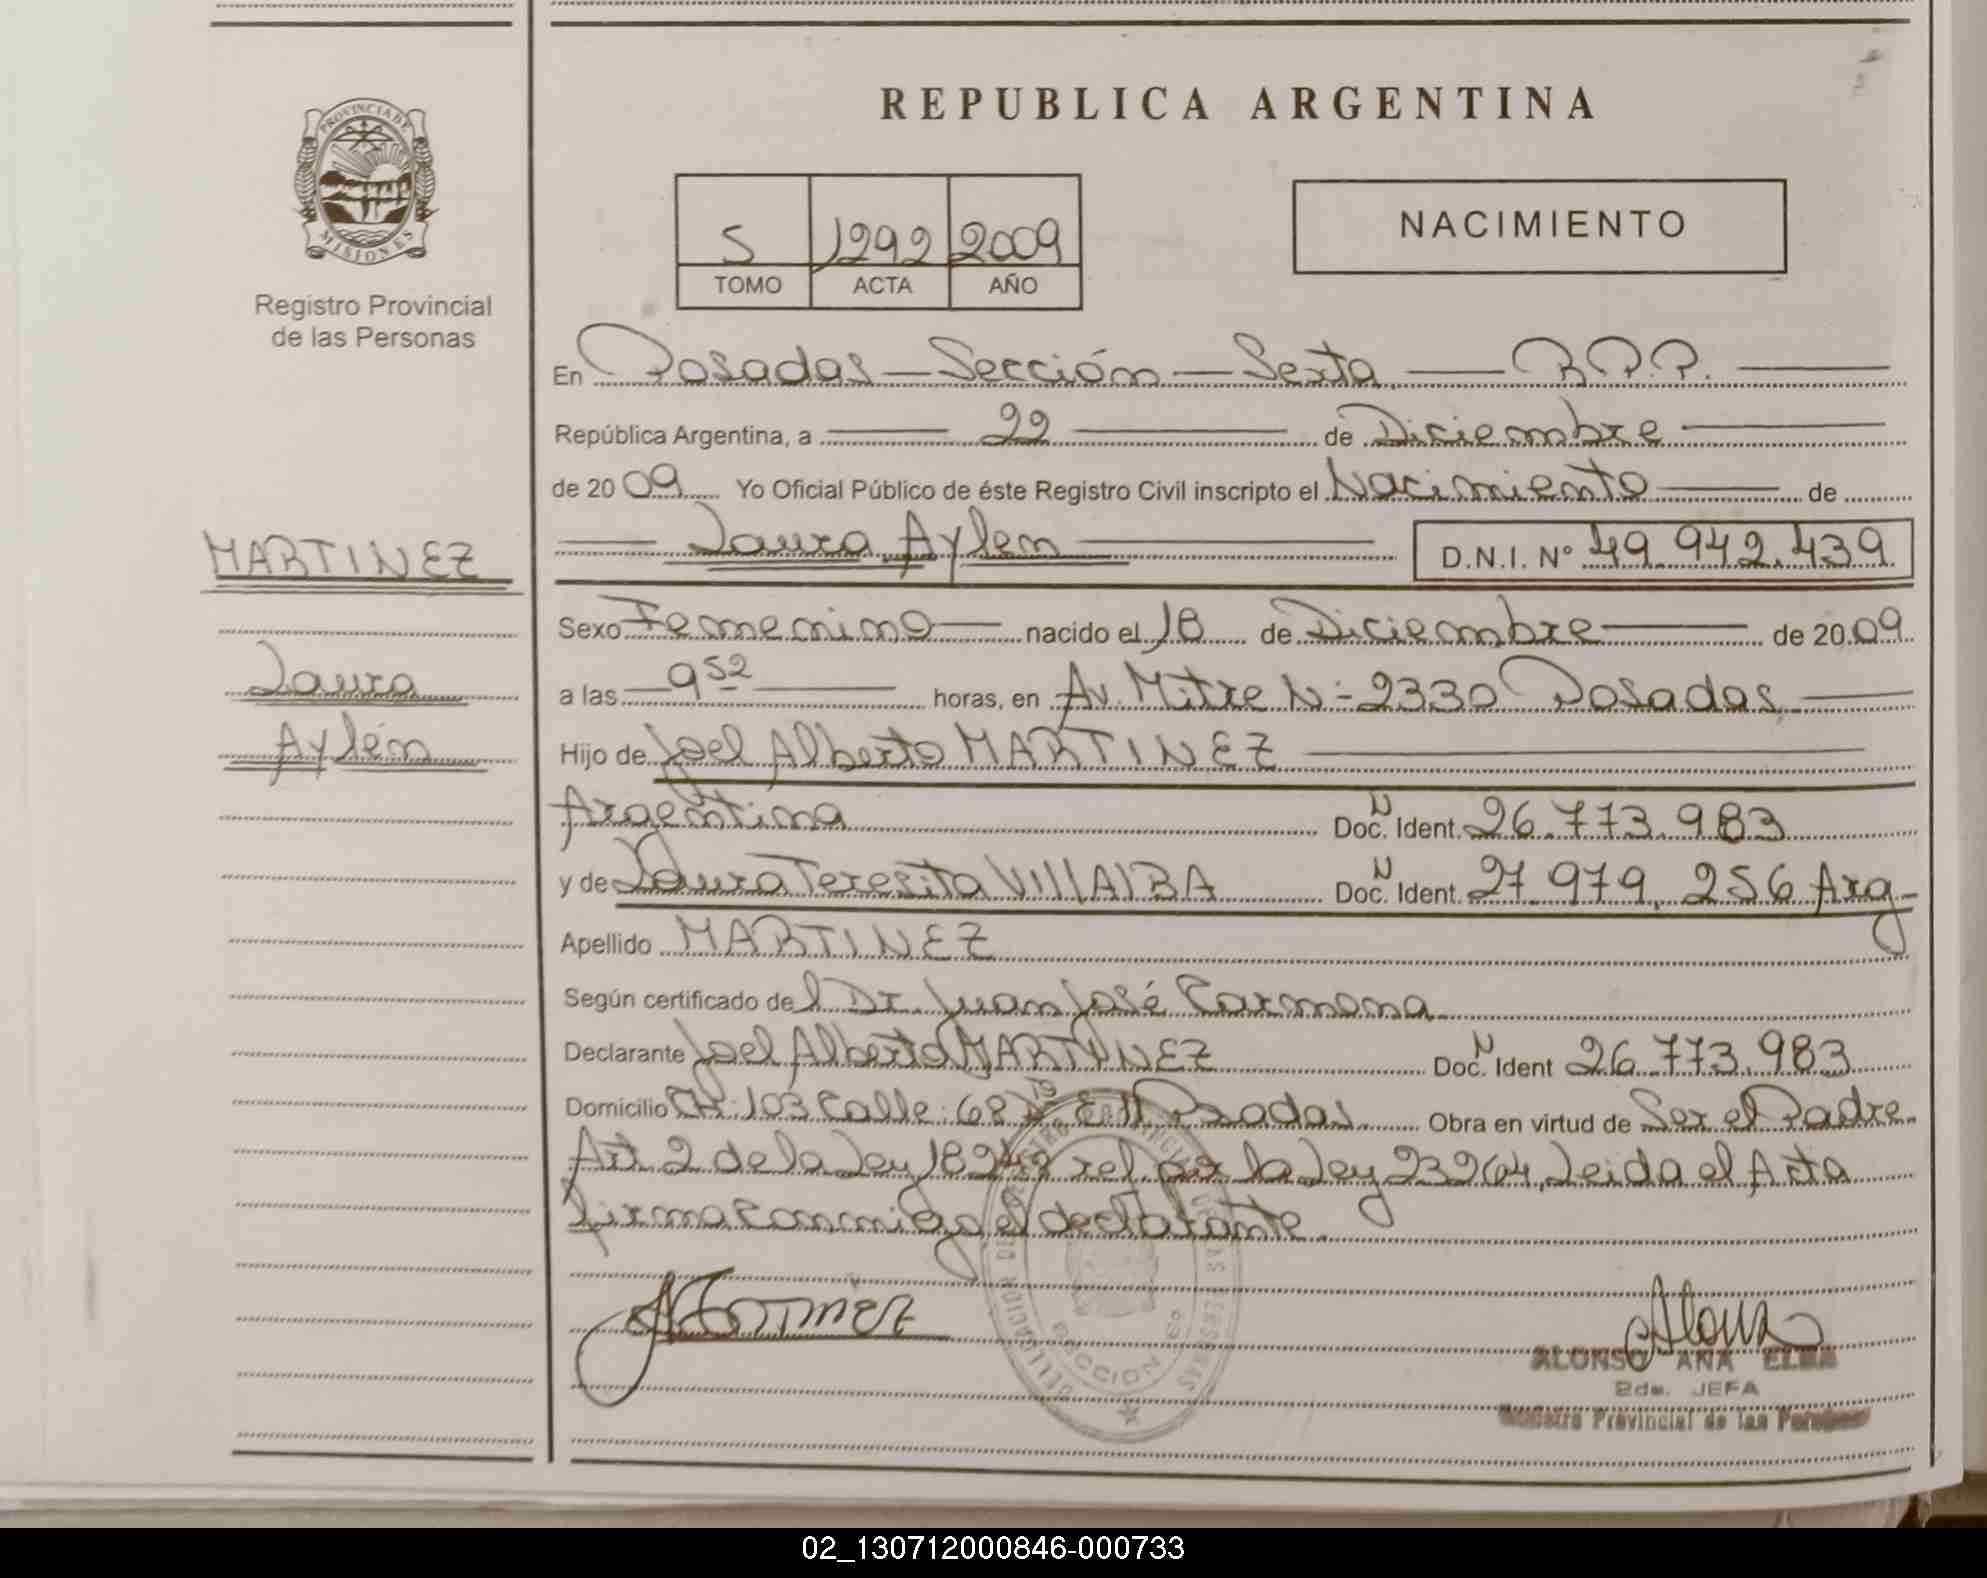 REPUBLICA ARGENTINA
PROVINCIA DE MISIONES
Registro Provincial
de las Personas
5 1292 2009
TOMO ACTA AÑO
NACIMIENTO
En Posadas — Sección — Sexta — R.P.P.
República Argentina, a — 22 — de Diciembre
de 2009 Yo Oficial Público de éste Registro Civil inscripto el Nacimiento — de
— Laura Aylen — D.N.I. Nº 49.942.439
MARTINEZ
Laura
Aylén
Sexo Femenino — nacido el 18 de Diciembre — de 2009
a las — 9 52 — horas, en Av. Mitre N- 2330 Posadas —
Hijo de Joel Alberto MARTINEZ —
Argentina Doc. N Ident. 26.773.983
y de Laura Teresita VIllAlBA Doc. N Ident. 27.979.256 Arg-
Apellido MARTINEZ
Según certificado del Dr. Juan José Carmona
Declarante Joel Alberto MARTINEZ Doc. N Ident 26.773.983
Domicilio CH: 103 Calle: 68 Posadas. Obra en virtud de Ser el Padre.
Art. 2 de la Ley 18248 ref. por la Ley 23264, Leida el Acta
firma conmigo el declarante.
Martinez
ALONSO ANA ELBA
2da. JEFA
Registro Provincial de las Personas
DELEGACION DEL REGISTRO PROVINCIAL DE LAS PERSONAS
SECCION 6º
02_130712000846-000733